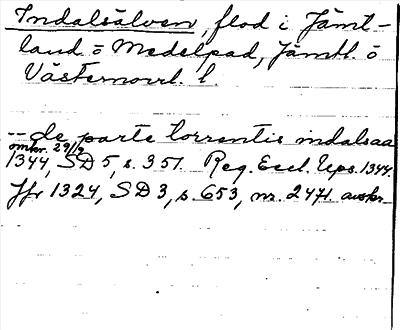 Indalsälven, flod i Jämt-
land o Medelpad, Jämtl. o
Västernorrl. l.
-- de parte torrentis indalsaa
omkr. 29/9
1344, SD 5, s. 351. Reg. Eccl. Ups. 1344.
Jfr 1324, SD 3, s. 653, nr. 2471. avskr.